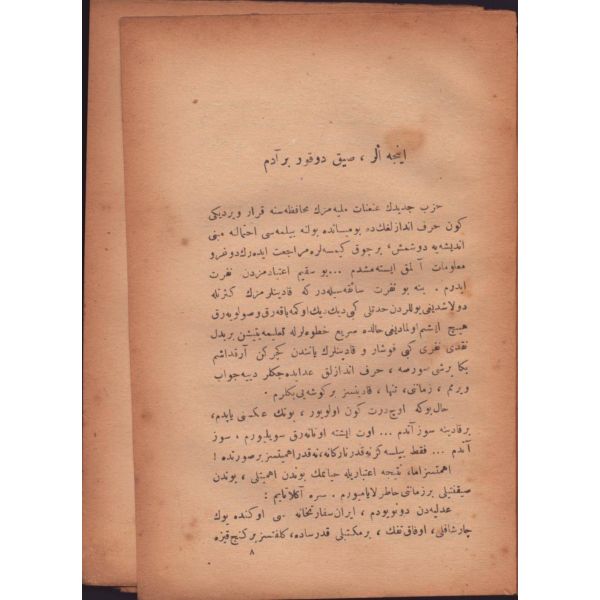 اینجه أللر ، صیق دوقور بر آدم
حزب جدیدك عنعنات ملیه مزك محافظه سنه قرار ویردیكی
كون حرف اندازلغك ده بو میانده بولنه بیلمه سی احتمالنه مبنی
اندیشه یه دوشمش، بر چوق كیمسه لره مراجعت ایده رك دوغرو
معلومات آلمق ایسته مشدم ... بو سقیم اعتیادمزدن نفرت
ایدرم . ینه بو نفرت سائقه سیله در كه قادینلرمزك كثرتله
دولاشدیغی یوللردن حدتلی كبی دیك دیك اوكمه باقه رق و صولویه رق
هیچ ایشم اولمادیغی حالده سریع خطوه لرله تعلیمه یتیشن بر بدل
نقدی نفری كبی قوشار و قادینلرك یانندن كچركن آرقداشم
بكا برشی سورسه ، حرف اندازلق عد ایده جكلر دییه جواب
ویرمم ، زمانی ، تنها ، قادینسز بر كوشه یی بكلرم .
حال بوكه اوچ درت كون اولویور ، بونك عكسنی یاپدم ،
بر قادینه سوز آتدم ... اوت ایشته اوتانه رق سویلیورم . سوز
آتدم ... فقط بیلسه كز نه قدر نازكانه ، نه قدر اهمیتسز بر صورتده !
اهمتسز اما، نتیجه اعتباریله حیاتمك بوندن اهمیتلی ، بوندن
صیقنتیلی بر زمانی خاطرلایامیورم . سزه آكلاتایم :
عدلیه دن دونویودم ، ایران سفارتخانه سی اوكنده یوك
چارشافلی ، اوفاق تفك ، بر مكتبلی قدر ساده ، كلفتسز بر كنج قیزه
۸